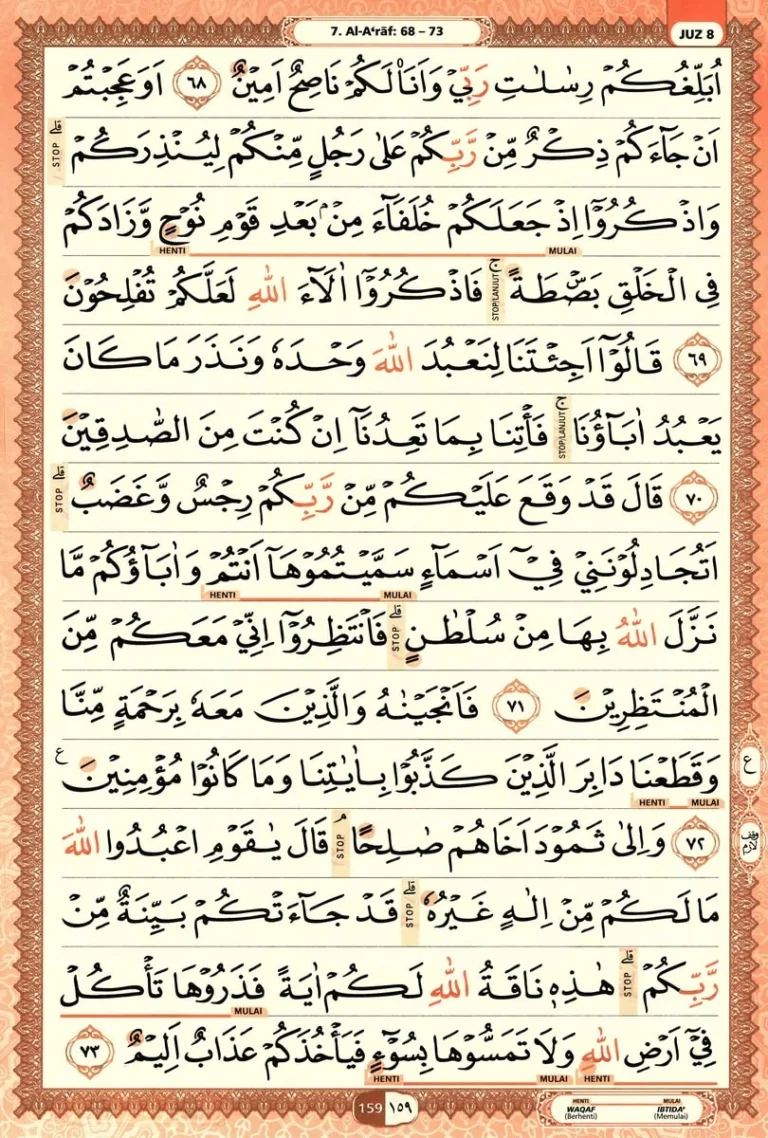 7. Al-A‘rāf: 68 – 73
JUZ 8
اُبَلِّغُكُمْ رِسٰلٰتِ رَبِّيْ وَاَنَا۠ لَكُمْ نَاصِحٌ اَمِيْنٌ ٦٨ اَوَعَجِبْتُمْ
اَنْ جَاۤءَكُمْ ذِكْرٌ مِّنْ رَّبِّكُمْ عَلٰى رَجُلٍ مِّنْكُمْ لِيُنْذِرَكُمْ ۗ STOP
وَاذْكُرُوْٓا اِذْ جَعَلَكُمْ خُلَفَاۤءَ مِنْۢ بَعْدِ قَوْمِ نُوْحٍ وَّزَادَكُمْ
MULAI HENTI
فِى الْخَلْقِ بَصْۣطَةً ۚ STOP/LANJUT فَاذْكُرُوْٓا اٰلَاۤءَ اللّٰهِ لَعَلَّكُمْ تُفْلِحُوْنَ
٦٩ قَالُوْٓا اَجِئْتَنَا لِنَعْبُدَ اللّٰهَ وَحْدَهٗ وَنَذَرَ مَا كَانَ
يَعْبُدُ اٰبَاۤؤُنَا ۚ STOP/LANJUT فَأْتِنَا بِمَا تَعِدُنَآ اِنْ كُنْتَ مِنَ الصّٰدِقِيْنَ
٧٠ قَالَ قَدْ وَقَعَ عَلَيْكُمْ مِّنْ رَّبِّكُمْ رِجْسٌ وَّغَضَبٌ ۗ STOP
اَتُجَادِلُوْنَنِيْ فِيْٓ اَسْمَاۤءٍ سَمَّيْتُمُوْهَآ اَنْتُمْ وَاٰبَاۤؤُكُمْ مَّا
MULAI HENTI
نَزَّلَ اللّٰهُ بِهَا مِنْ سُلْطٰنٍ ۗ STOP فَانْتَظِرُوْٓا اِنِّيْ مَعَكُمْ مِّنَ
الْمُنْتَظِرِيْنَ ٧١ فَاَنْجَيْنٰهُ وَالَّذِيْنَ مَعَهٗ بِرَحْمَةٍ مِّنَّا
وَقَطَعْنَا دَابِرَ الَّذِيْنَ كَذَّبُوْا بِاٰيٰتِنَا وَمَا كَانُوْا مُؤْمِنِيْنَ ࣖ
ع
MULAI HENTI
٧٢ وَاِلٰى ثَمُوْدَ اَخَاهُمْ صٰلِحًا ۘ STOP قَالَ يٰقَوْمِ اعْبُدُوا اللّٰهَ
وقف لازم
مَا لَكُمْ مِّنْ اِلٰهٍ غَيْرُهٗ ۗ STOP قَدْ جَاۤءَتْكُمْ بَيِّنَةٌ مِّنْ
رَّبِّكُمْ ۗ STOP هٰذِهٖ نَاقَةُ اللّٰهِ لَكُمْ اٰيَةً فَذَرُوْهَا تَأْكُلْ
MULAI
فِيْٓ اَرْضِ اللّٰهِ وَلَا تَمَسُّوْهَا بِسُوْۤءٍ فَيَأْخُذَكُمْ عَذَابٌ اَلِيْمٌ ٧٣
HENTI MULAI HENTI
159 ١٥٩
HENTI MULAI
WAQAF IBTIDA'
(Berhenti) (Memulai)